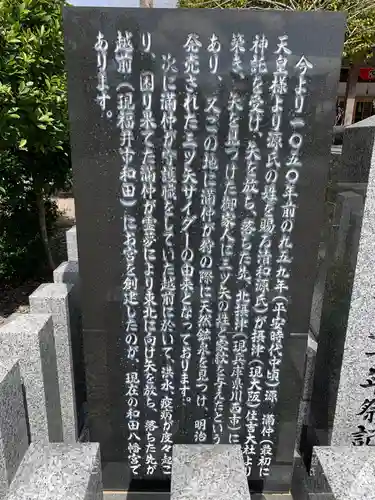 今より一〇五〇年前の九五九年(平安時代中頃)源 満仲(最初に
天皇様より源氏の姓を賜る清和源氏)が摂津(現大阪)住吉大社より
神託を受け、矢を放ち、落ちた先、北摂津(現兵庫県川西市)に
築き、矢を見つけた御家人に三ツ矢の姓と家紋を与えたという
あり、又この地に満仲が狩の際に天然鉱水を見つけ、明治
発売された三ツ矢サイダーの由来となっております。
次に満仲が守護職をしていた越前に於いて、洪水、疫病が度々起こ
り、困り果てた満仲が霊夢により東北に向け矢を放ち、落ちた先が
越前(現福井市和田)にお宮を創建したのが、現在の和田八幡宮で
あります。
祭記